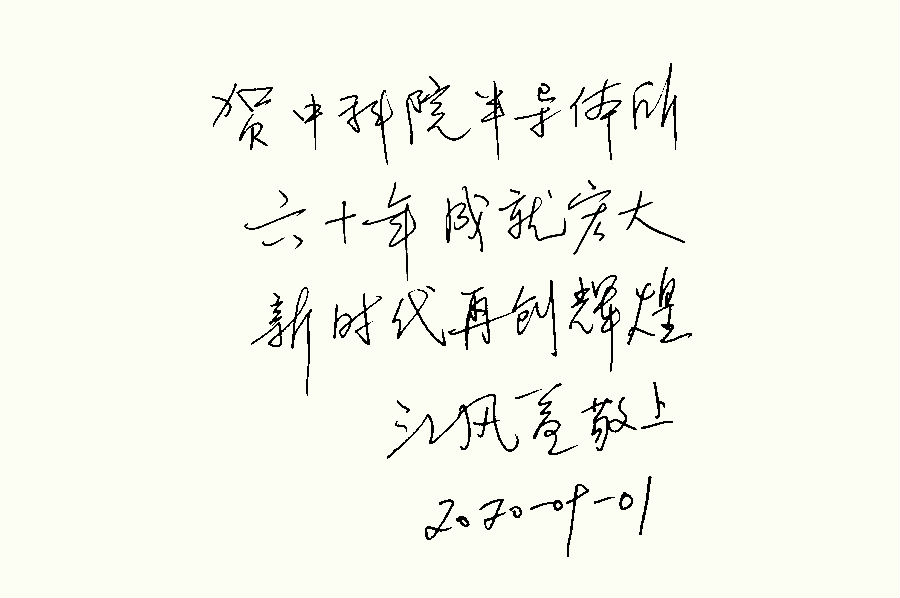 贺中科院半导体所
六十年成就宏大
新时代再创辉煌
江风益敬上
2020-09-01